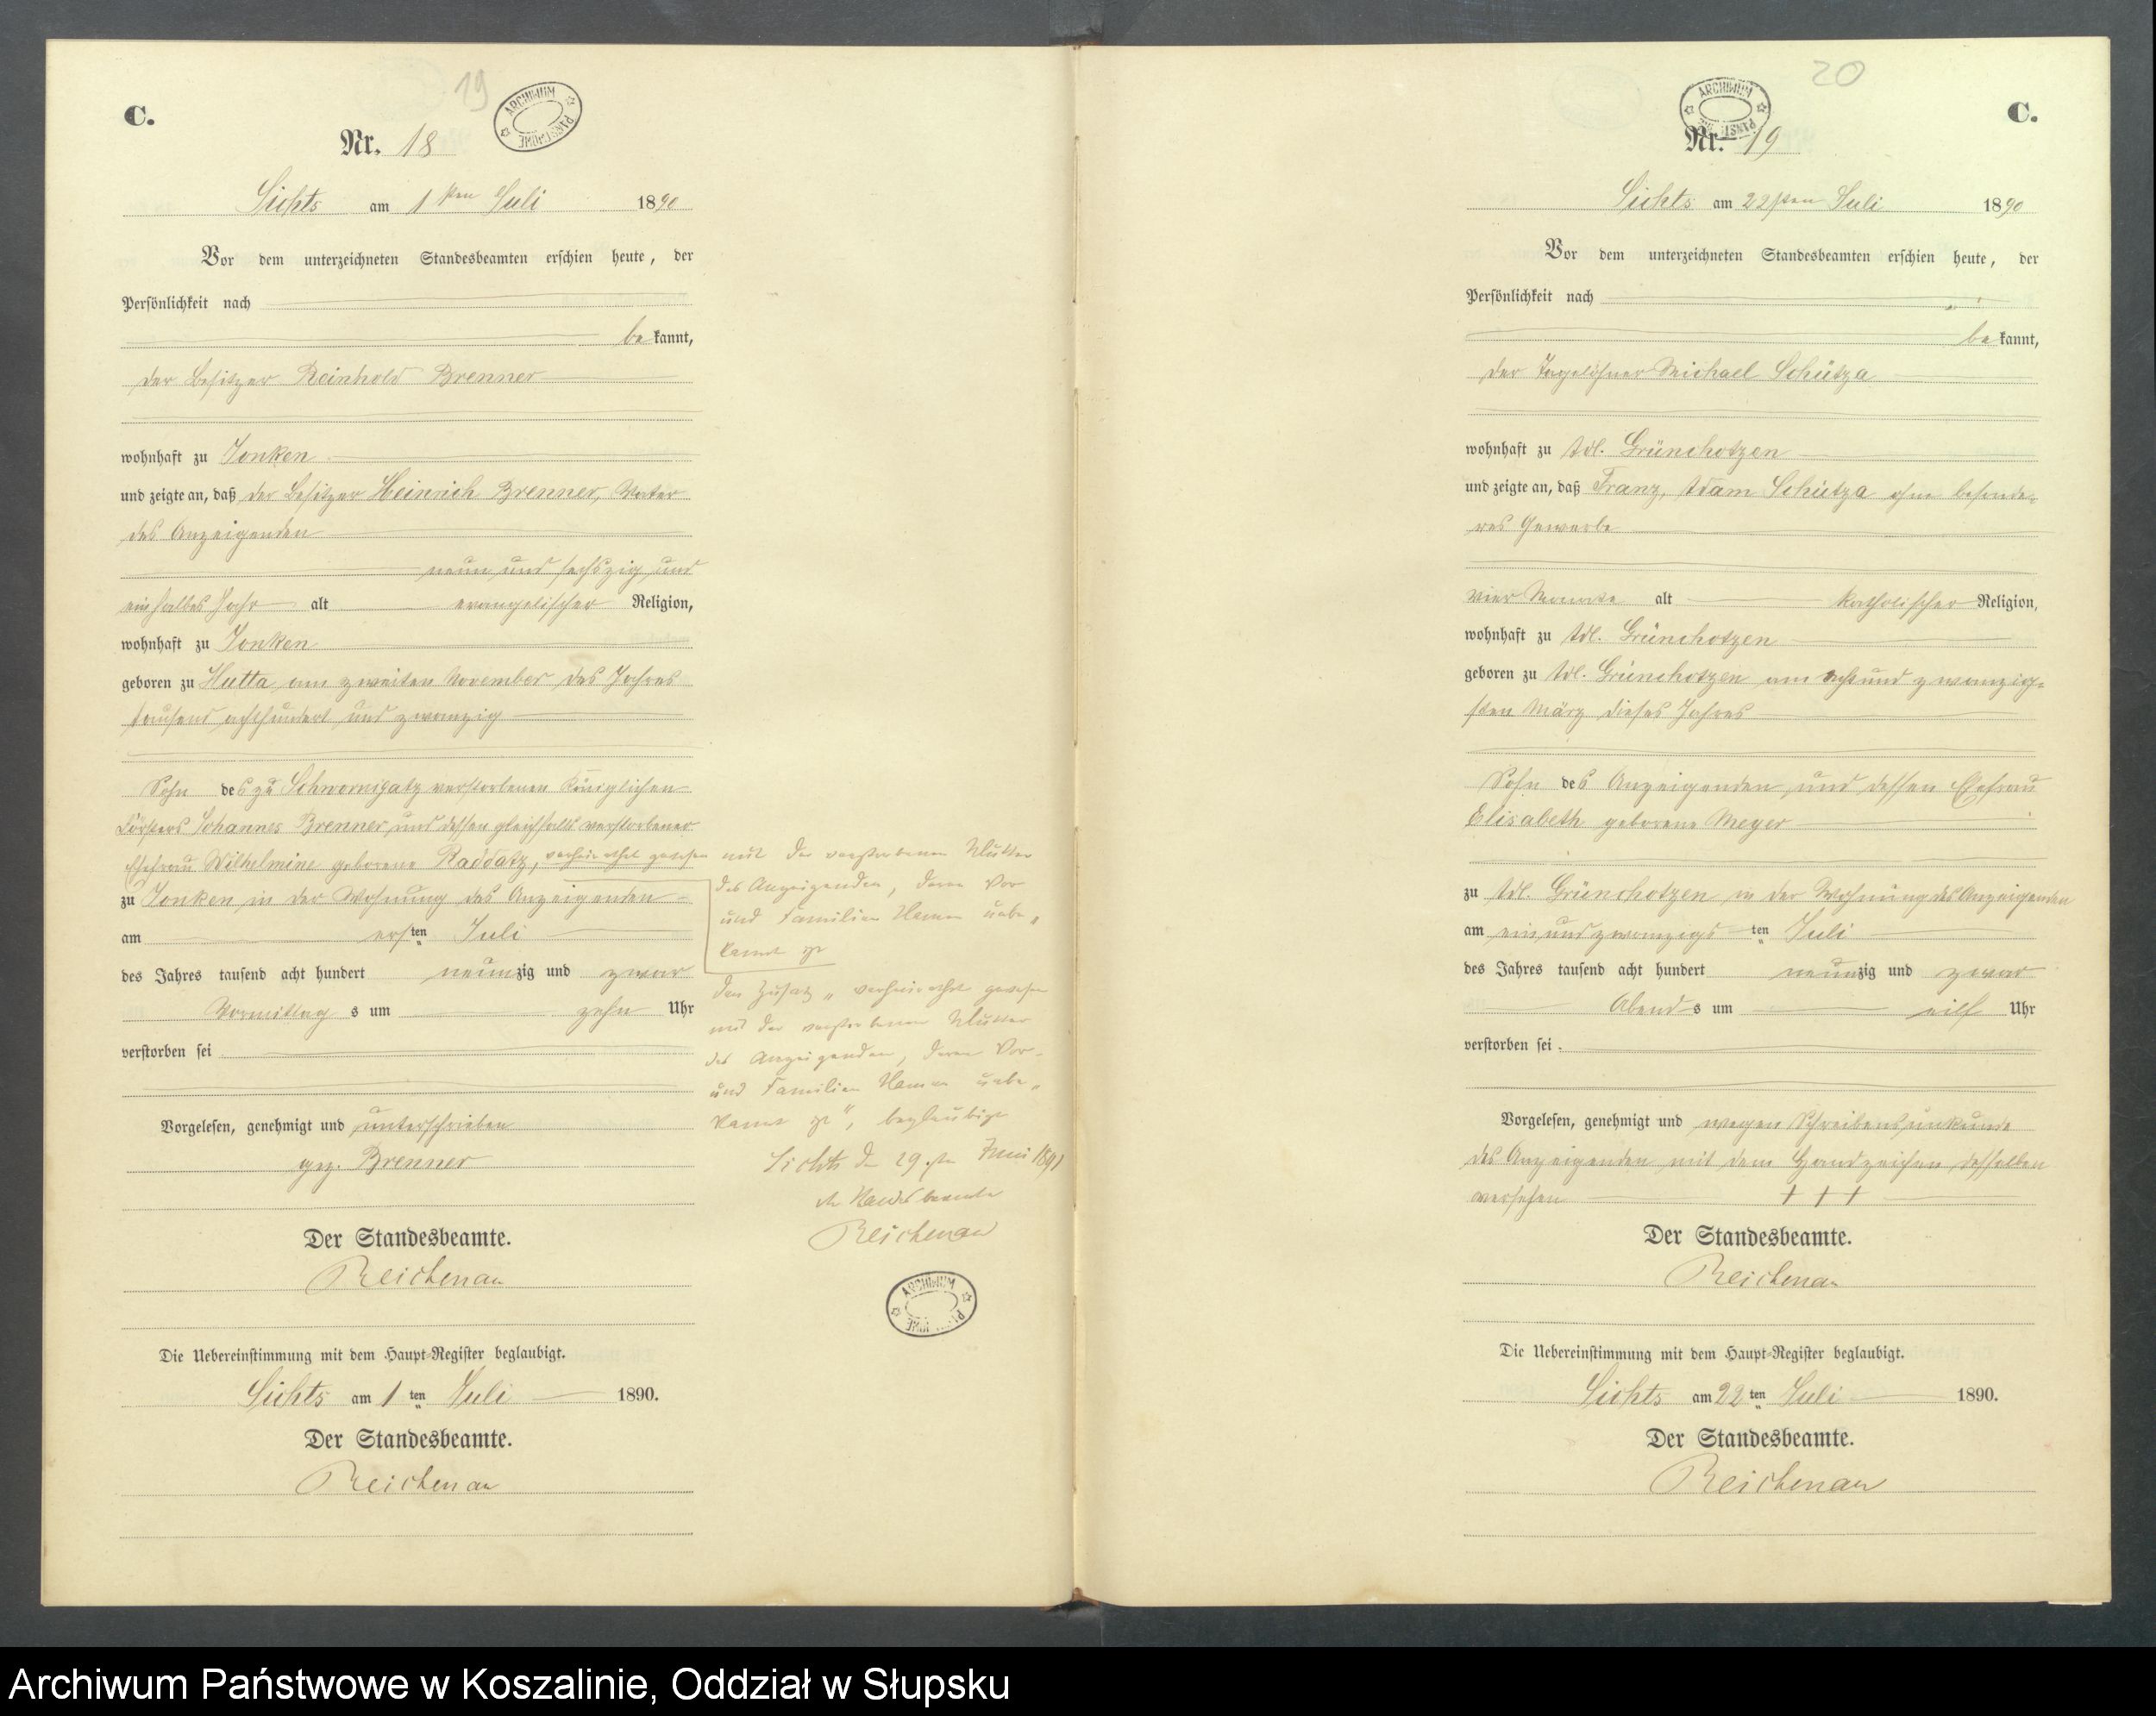 19
C.
ARCHIWUM PAŃSTWOWE
Nr. 18
Lichts am 1sten Juli 1890
Vor dem unterzeichneten Standesbeamten erschien heute, der
Persönlichkeit nach
bekannt,
der Besitzer Reinhold Brenner
wohnhaft zu Jonken
und zeigte an, daß der Besitzer Heinrich Brenner, Vater
des Anzeigenden
neun und sechszig und
ein halbes Jahr alt evangelischer Religion,
wohnhaft zu Jonken
geboren zu Hutta am zweiten November des Jahres
tausend achthundert und zwanzig
Sohn des zu verstorbenen Königlichen
Försters Johannes Brenner und dessen gleichfalls verstorbener
Ehefrau Wilhelmine geborene Raddatz, verheirathet gewesen
zu Jonken in der Wohnung des Anzeigenden
am ersten Juli
des Jahres tausend acht hundert neunzig und zwar
Vormittags um zehn Uhr
verstorben sei
Vorgelesen, genehmigt und unterschrieben
gez. Brenner
Der Standesbeamte.
Reichenau
Die Uebereinstimmung mit dem Haupt-Register beglaubigt.
Lichts am 1ten Juli 1890.
Der Standesbeamte.
Reichenau
mit der verstorbenen Mutter
des Anzeigenden, deren Vor
und Familien Namen unbe„
kannt
Den Zusatz „verheirathet gewesen
mit der verstorbenen Mutter
des Anzeigenden, deren Vor-
und Familien Namen unbe„
kannt", beglaubigt
Lichts den 29sten Juni 1891
Der Standesbeamte
Reichenau
ARCHIWUM PAŃSTWOWE
20
ARCHIWUM PAŃSTWOWE
C.
Nr. 19
Lichts am 22sten Juli 1890
Vor dem unterzeichneten Standesbeamten erschien heute, der
Persönlichkeit nach
bekannt,
der Tagelöhner Michael Schütza
wohnhaft zu Adl. Grünchotzen
und zeigte an, daß Franz, Adam Schütza ohne besonde-
res Gewerbe
vier Monate alt katholischer Religion,
wohnhaft zu Adl. Grünchotzen
geboren zu Adl. Grünchotzen am acht und zwanzig-
sten März dieses Jahres
Sohn des Anzeigenden und dessen Ehefrau
Elisabeth geborene Meyer
zu Adl. Grünchotzen in der Wohnung des Anzeigenden
am ein und zwanzigsten Juli
des Jahres tausend acht hundert neunzig und zwar
Abends um eilf Uhr
verstorben sei.
Vorgelesen, genehmigt und wegen Schreibensunkunde
des Anzeigenden mit dem Handzeichen desselben
versehen + + +
Der Standesbeamte.
Reichenau
Die Uebereinstimmung mit dem Haupt-Register beglaubigt.
Lichts am 22ten Juli 1890.
Der Standesbeamte.
Reichenau
Archiwum Państwowe w Koszalinie, Oddział w Słupsku